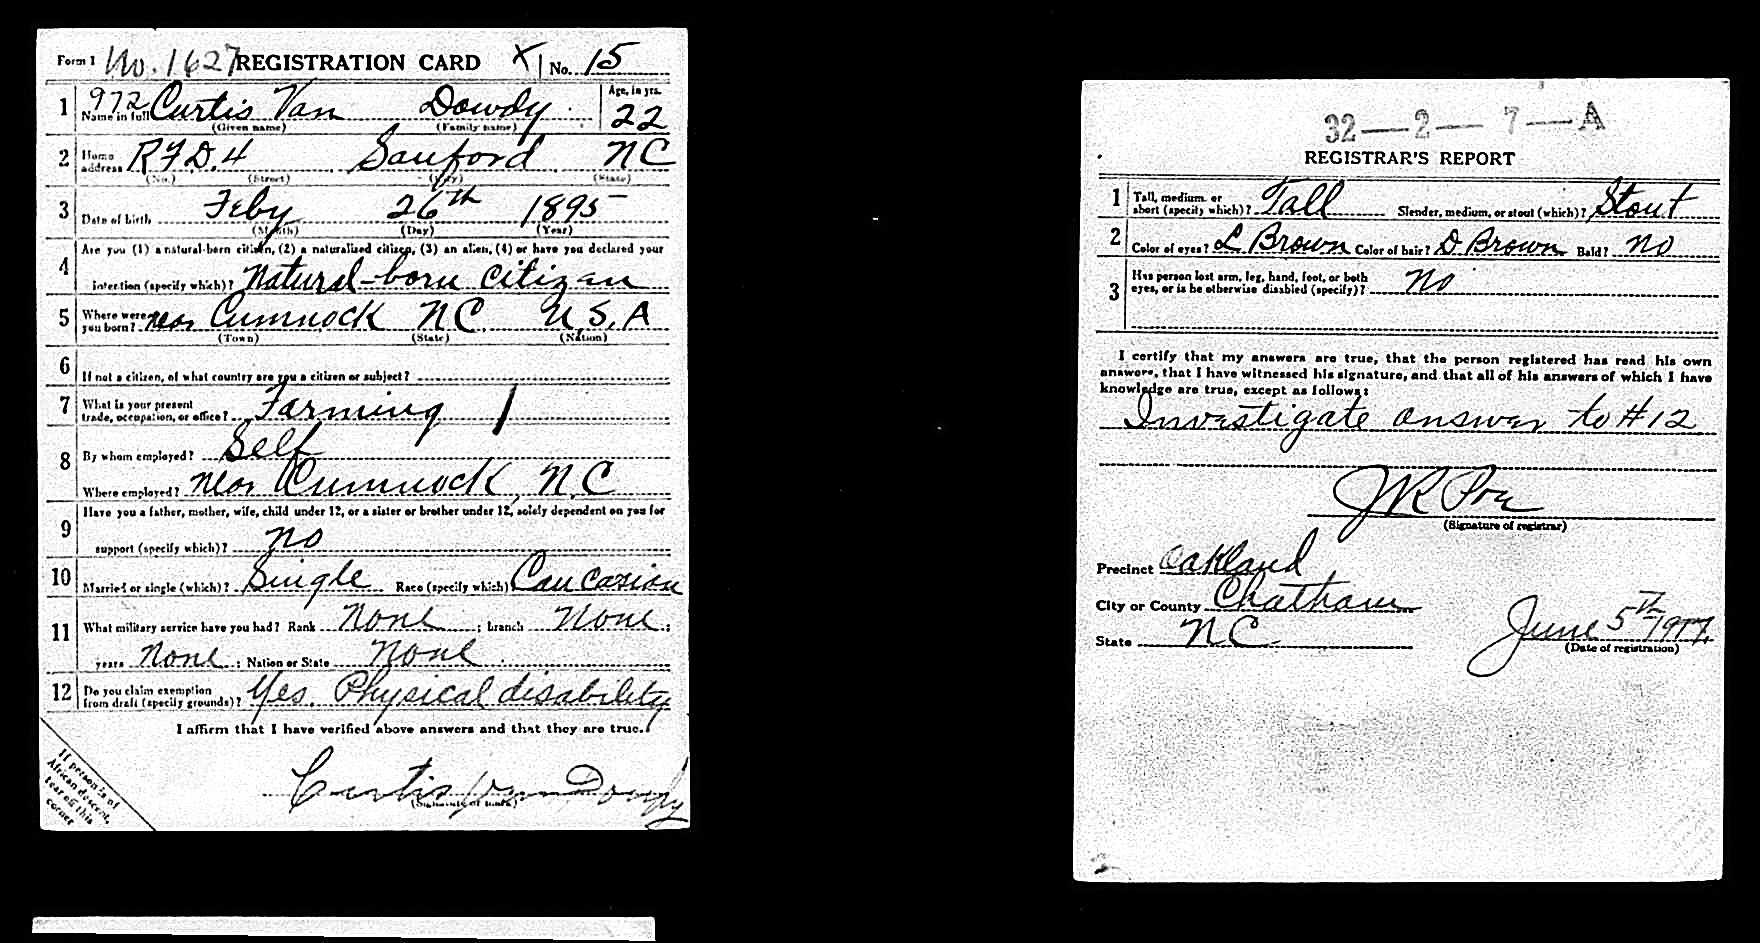 Form 1 No. 1627 REGISTRATION CARD X No. 15
1 972 Name in full Curtis Van Dowdy Age, in yrs. 22
(Given name) (Family name)
2 Home address R.F.D. 4 Sanford NC
(No.) (Street) (City) (State)
3 Date of birth Feby 26th 1895
(Month) (Day) (Year)
4 Are you (1) a natural-born citizen, (2) a naturalized citizen, (3) an alien, (4) or have you declared your
intention (specify which)? Natural-born citizan
5 Where were you born? near Cumnock NC. U.S.A
(Town) (State) (Nation)
6 If not a citizen, of what country are you a citizen or subject?
7 What is your present trade, occupation, or office? Farming 1
8 By whom employed? Self
Where employed? near Cumnock, N.C
9 Have you a father, mother, wife, child under 12, or a sister or brother under 12, solely dependent on you for
support (specify which)? no
10 Married or single (which)? Single Race (specify which) Caucasian
11 What military service have you had? Rank None ; branch None ;
years None ; Nation or State None
12 Do you claim exemption from draft (specify grounds)? Yes. Physical disability
I affirm that I have verified above answers and that they are true.
Curtis Van Dowdy
If person is of
African descent,
tear off this
corner
32—2—7—A
REGISTRAR'S REPORT
1 Tall, medium, or short (specify which)? Tall Slender, medium, or stout (which)? Stout
2 Color of eyes? L Brown Color of hair? D Brown Bald? No
3 Has person lost arm, leg, hand, foot, or both
eyes, or is he otherwise disabled (specify)? No
I certify that my answers are true, that the person registered has read his own
answers, that I have witnessed his signature, and that all of his answers of which I have
knowledge are true, except as follows:
Investigate answer to #12
JR Poe
(Signature of registrar)
Precinct Oakland
City or County Chatham
State NC.
June 5th 1917.
(Date of registration)